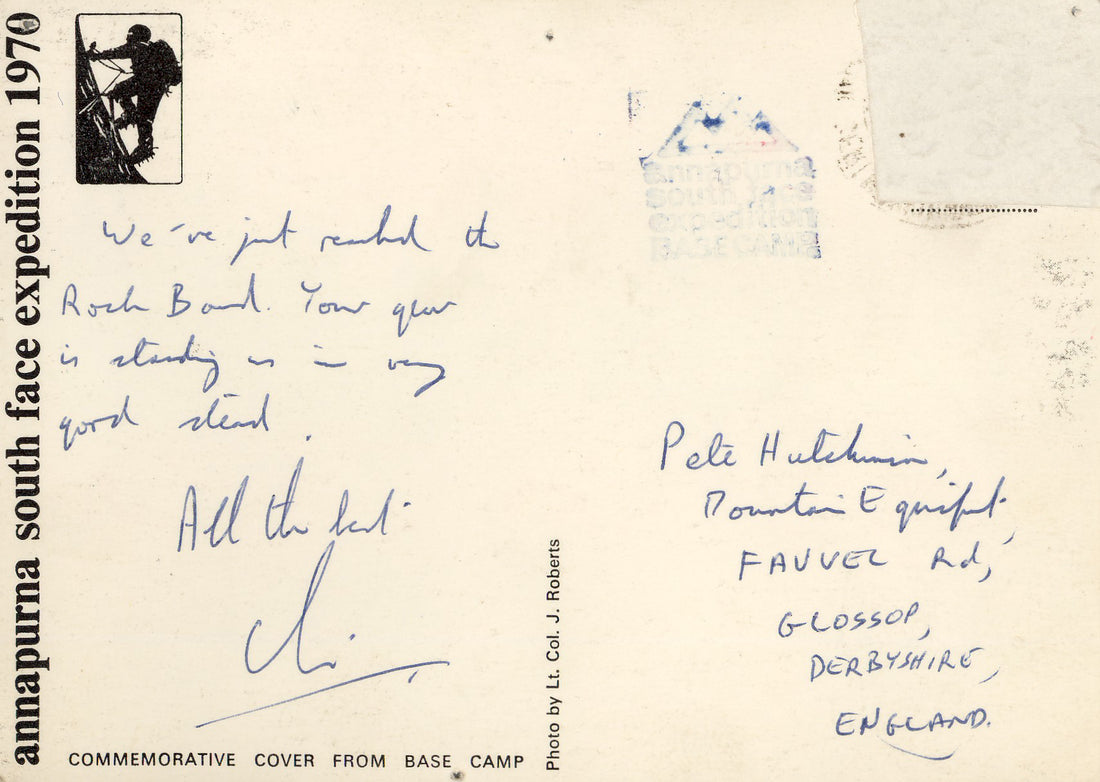 annapurna south face expedition 1970
We've just reached the
Rock Band. Your gear
is standing us in very
good stead.
All the best
Chris
COMMEMORATIVE COVER FROM BASE CAMP
Photo by Lt. Col. J. Roberts
annapurna
south face
expedition
BASE CAMP
Pete Hutchinson,
Mountain Equipt,
FAUVEL Rd,
GLOSSOP,
DERBYSHIRE,
ENGLAND.